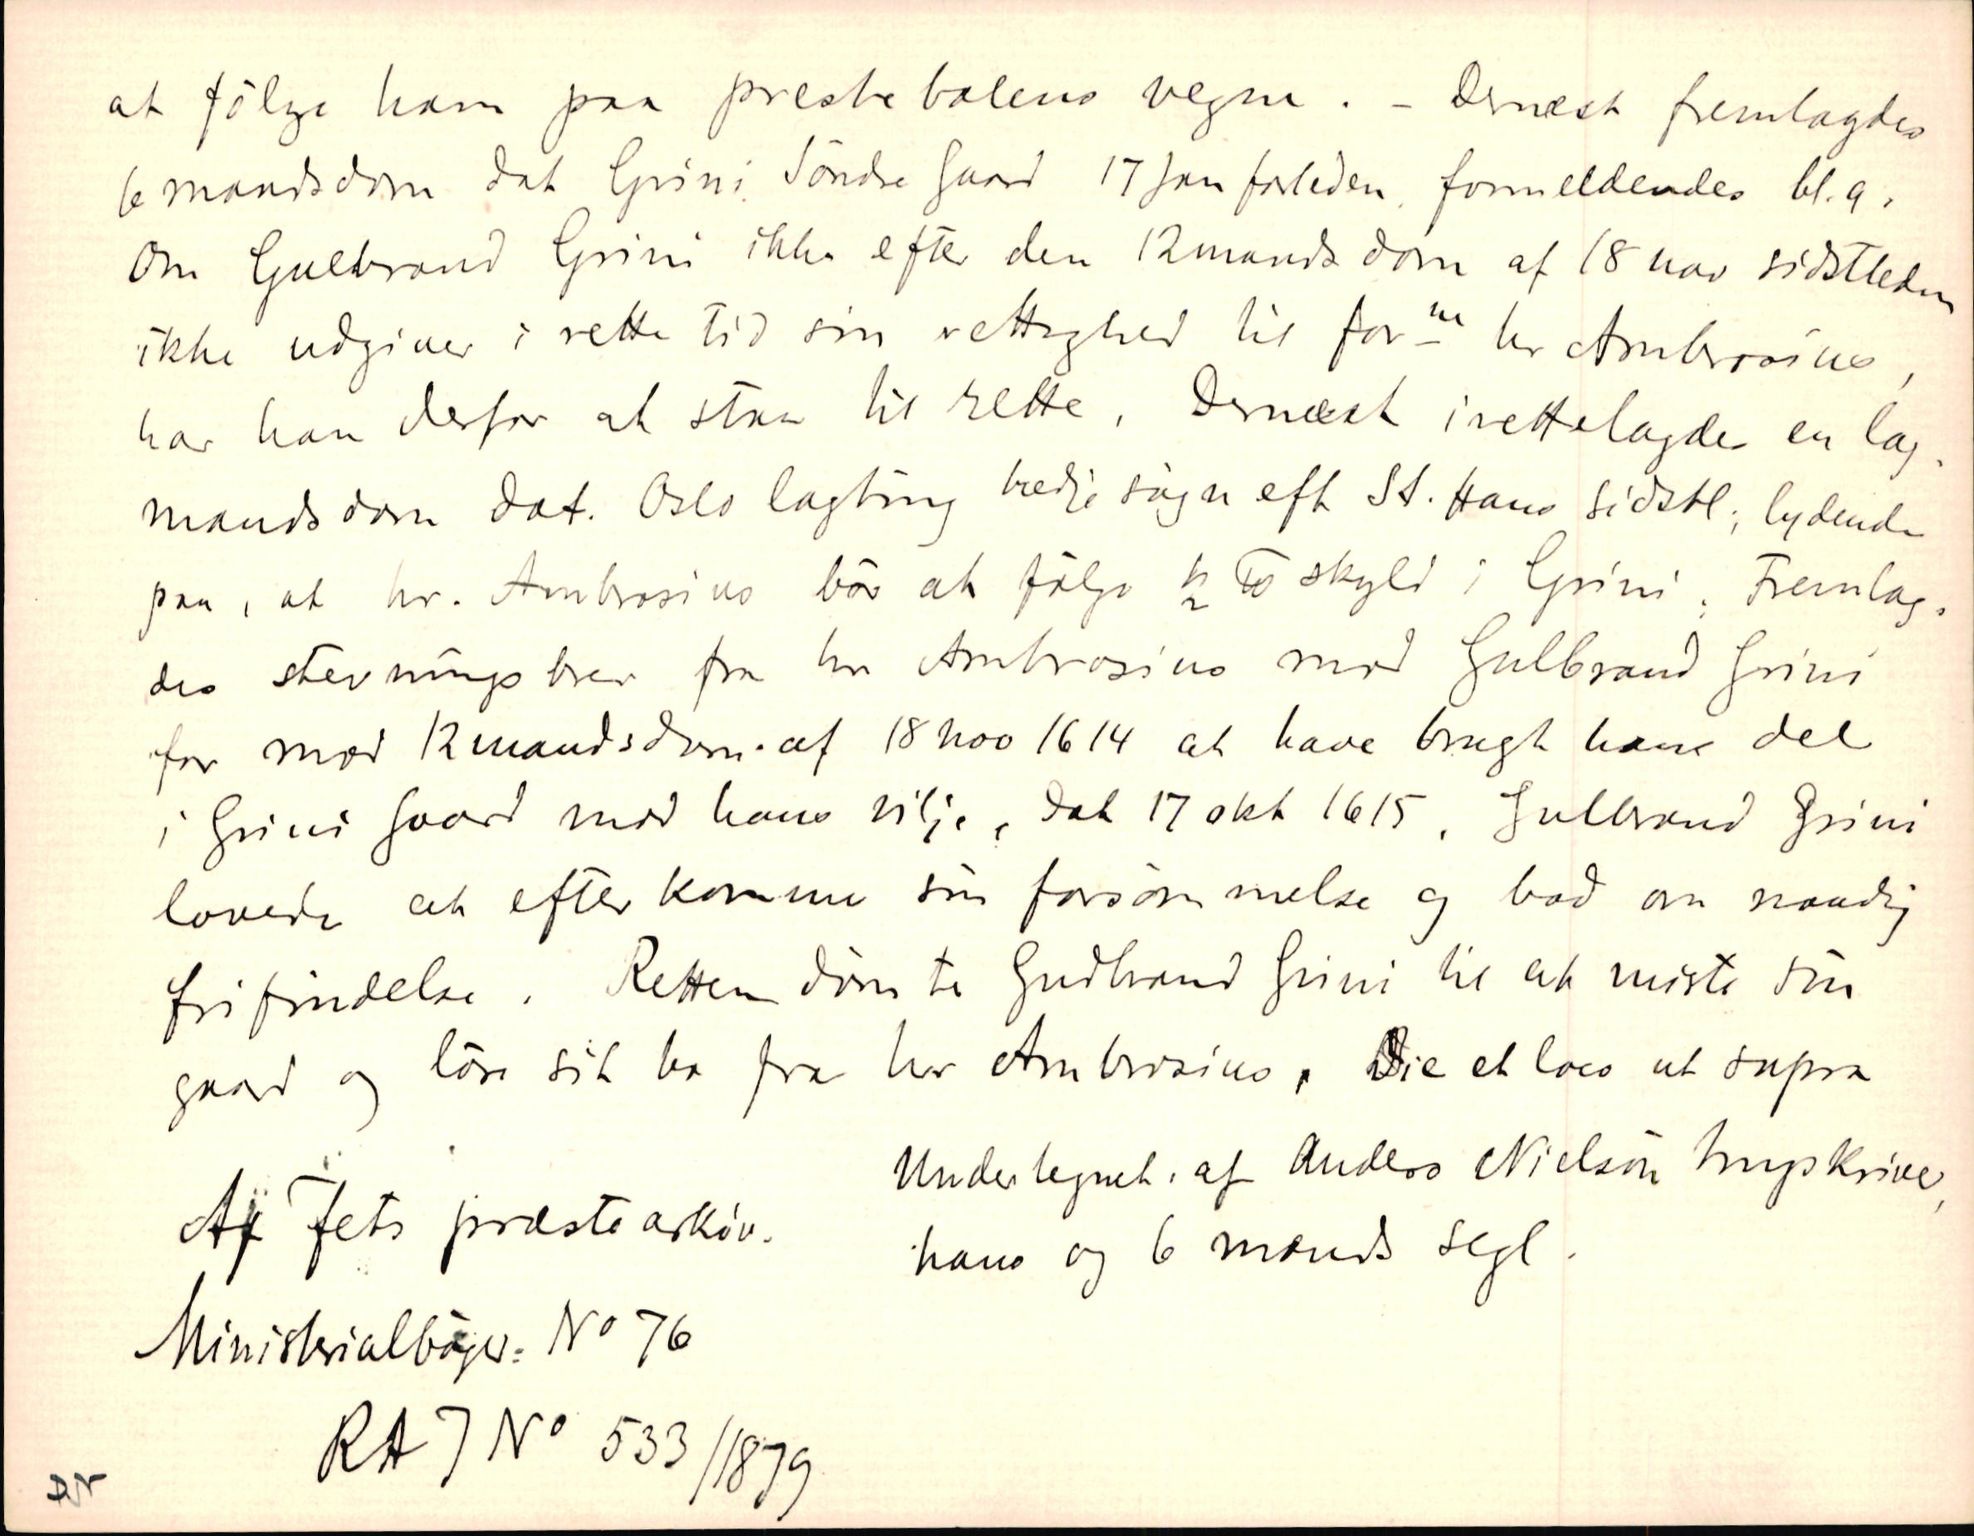 at fölge ham paa prestebolens vegne. – Dernæst fremlagdes
6 mandsdom dat Grini Söndre Gaard 17 Jan forleden, formeldendes bl. a.
Om Gulbrand Grini ikke efter den 12 mands dom af 18 nov sidstleden
ikke udgiver i rette tid sin rettighed til forne hr Ambrosius,
har han derfor at staa til rette. Dernæst irettelagdes en lag-
mandsdom dat. Oslo lagting tredje sögn eft St. Hans sidstl., lydende
paa, at hr. Ambrosius bör at fölge skyld i Grini. Fremlag-
des stevningsbrev fra hr Ambrosius mod Gulbrand Grini
for mod 12 mandsdom af 18 nov 1614 at have brugt hans del
i Grini Gaard mod hans vilje, dat 17 okt 1615. Gulbrand Grini
lovede at efterkomme sin forsömmelse og bad om naadig
frifindelse. Retten dömte Gudbrand Grini til at miste sin
gaard og löse sit bo fra hr Ambrosius. Die et loco ut supra
Undertegnet af Anders Nielsön
hans og 6 mænds segl.
Af Fets præstearkiv.
Ministerialböger: No 76
RA J No 533/1879
DN